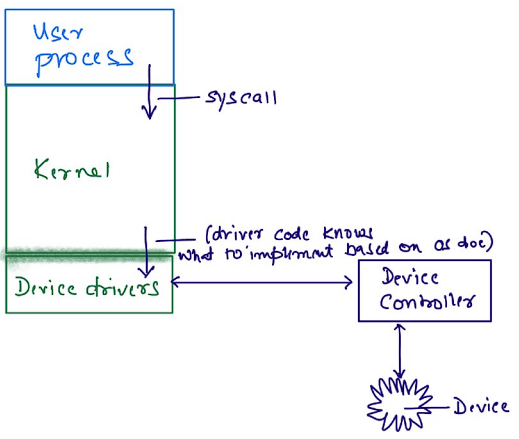 User
process
syscall
Kernel
(driver code knows
what to implement based on os doc)
Device drivers
Device
Controller
Device